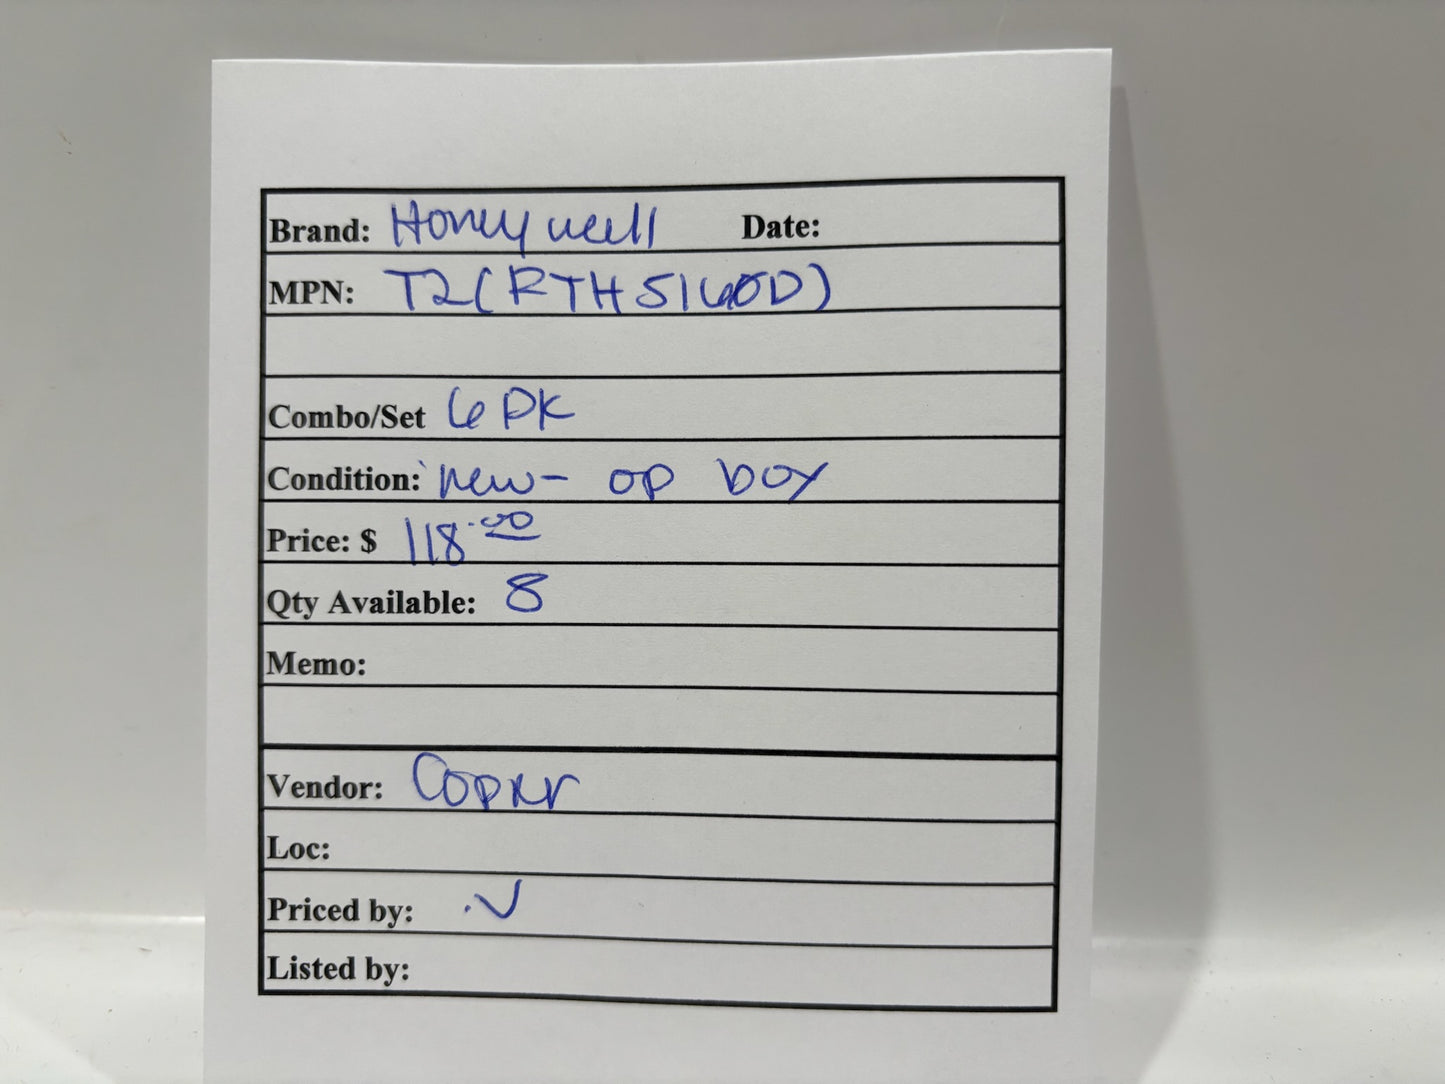 Brand: Honeywell Date:
MPN: T2 (RTH5160D)
Combo/Set 6 PK
Condition: new - op box
Price: $ 118.00
Qty Available: 8
Memo:
Vendor:
Loc:
Priced by: .V
Listed by: